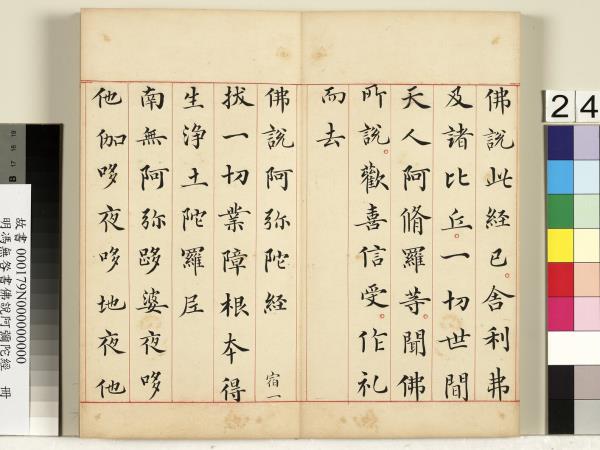 佛說此經已。舍利弗
及諸比丘。一切世間
天人阿脩羅等。聞佛
所說。歡喜信受。作礼
而去
佛說阿弥陀經 宿一
拔一切業障根本得
生淨土陀羅尼
南無阿弥哆婆夜哆
他伽哆夜哆地夜他
24
故書 000179N000000000
明馮無咎書佛說阿彌陀經 冊